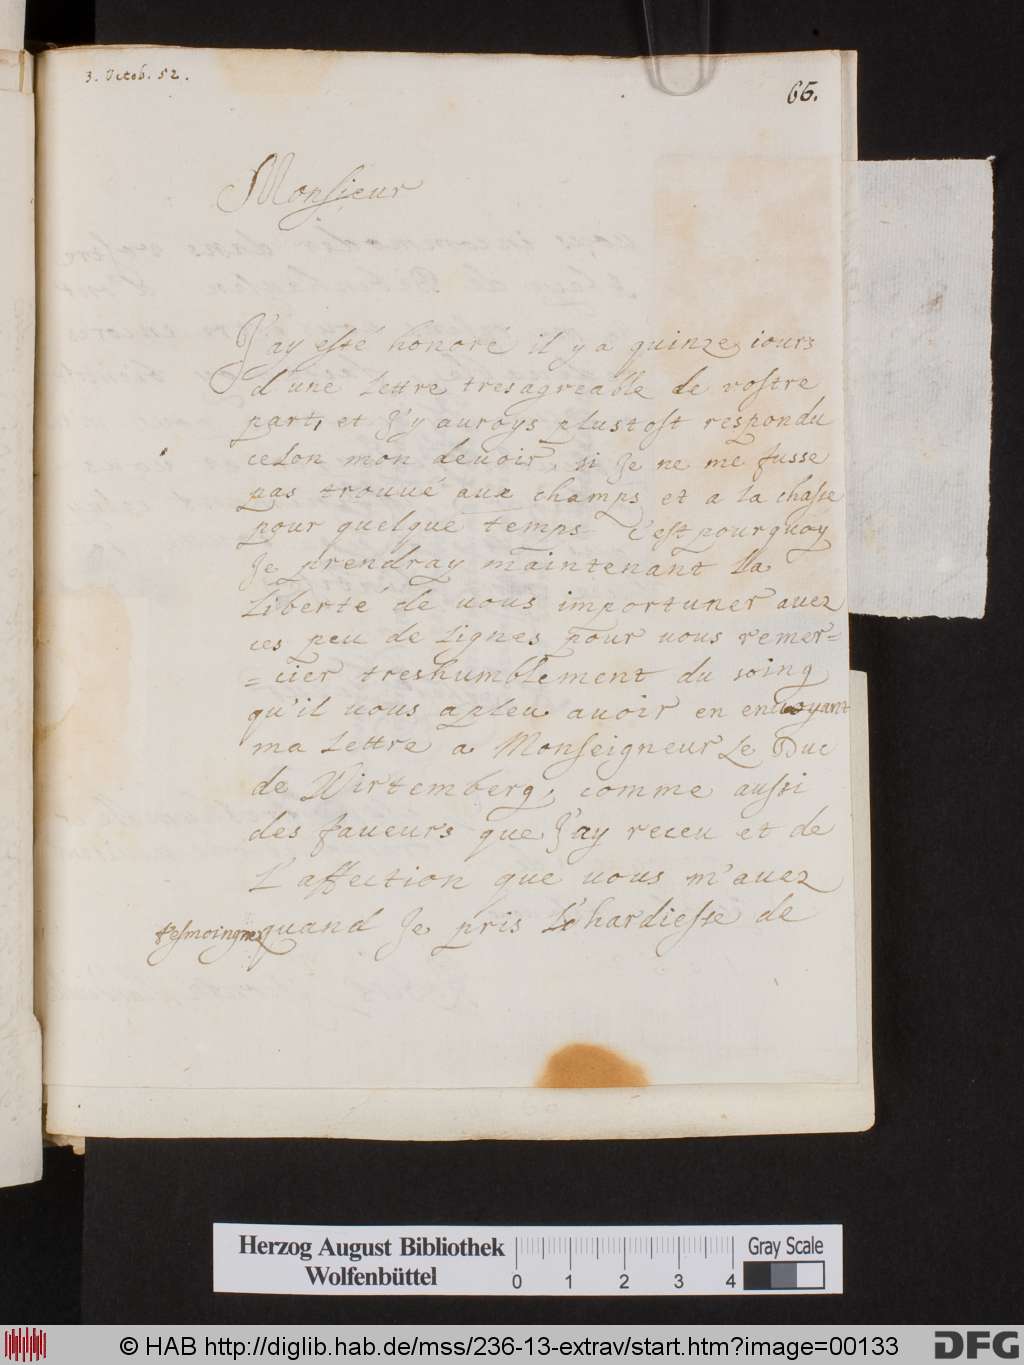 3. Octob. 52.
66.
Monsieur
J'ay esté honoré il y a quinze iours
d'une Lettre tresagreable de vostre
part, et J'y auroys plustost respondu
celon mon deuoir, si Je ne me fusse
pas trouué aux champs et a la chasse
pour quelque temps C'est pourquoy
Je prendray maintenant la
Liberté de uous importuner auez
ces peu de Lignes pour uous remer=
=cier treshumblement du soing
qu'il uous apleu auoir en enuoyant
ma Lettre a Monseigneur Le Duc
de Wirtemberg, comme aussi
des faueurs que J'ay receu et de
L'affection que uous m'auez
tesmoingné quand Je pris La hardiesse de
Herzog August Bibliothek
Wolfenbüttel
0 1 2 3 4
Gray Scale
© HAB http://diglib.hab.de/mss/236-13-extrav/start.htm?image=00133
DFG